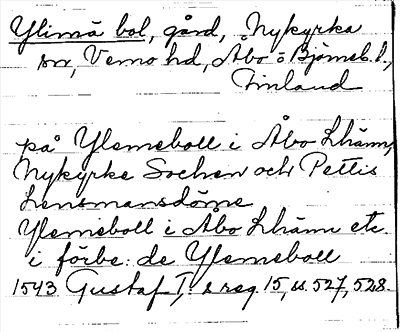 Ylimä bol, gård, Nykyrka
sn, Vemo hd, Åbo o Björneb. l.,
Finland
på Ylemeboll i Åbo Lhänn,
Nykyrke Sochen och Pettis
Lensmansdöme
Ylemeboll i Åbo Lhänn etc.
i förbe: de Ylemeboll
1543 Gustaf I, s reg. 15, ss. 527, 528.